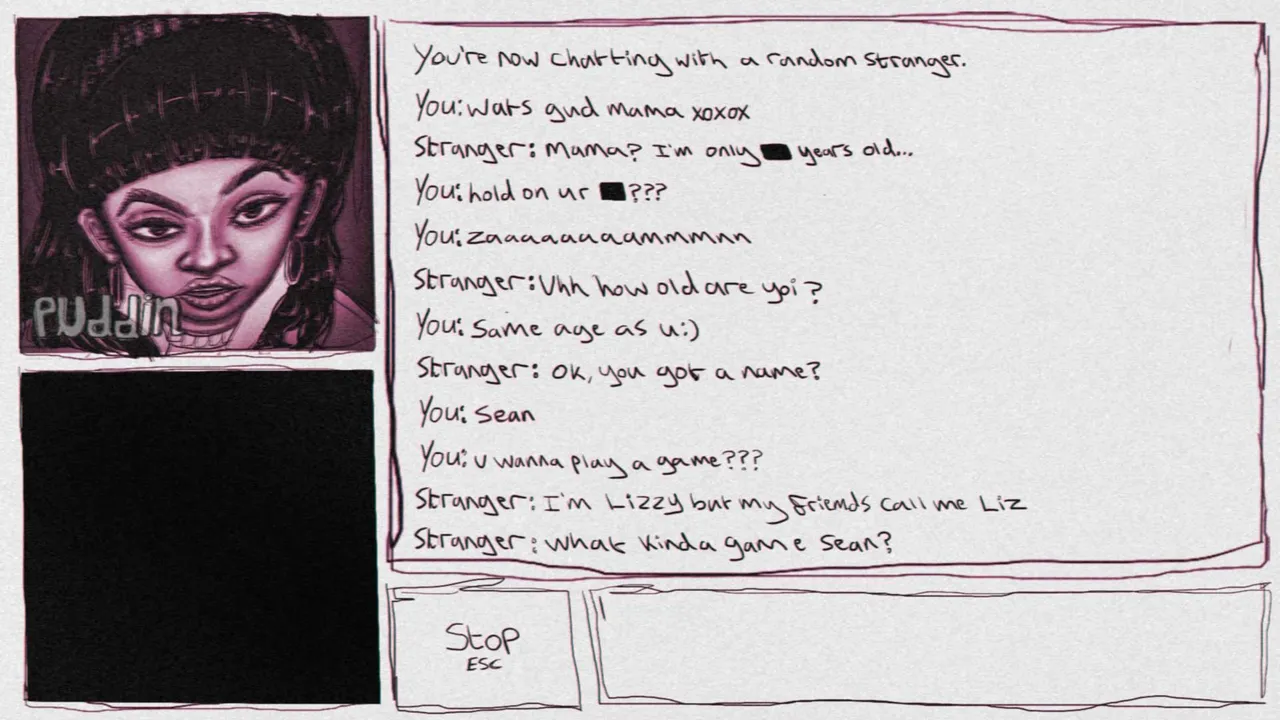 You're now chatting with a random stranger.
You: wats gud mama xoxox
Stranger: Mama? I'm only years old...
You: hold on ur ???
You: zaaaaaaaammmnn
Stranger: Uhh how old are yoi?
You: Same age as u:)
Stranger: OK, you got a name?
You: Sean
You: u wanna play a game???
Stranger: I'm Lizzy but my friends call me Liz
Stranger: What kinda game Sean?
puddin
Stop
ESC